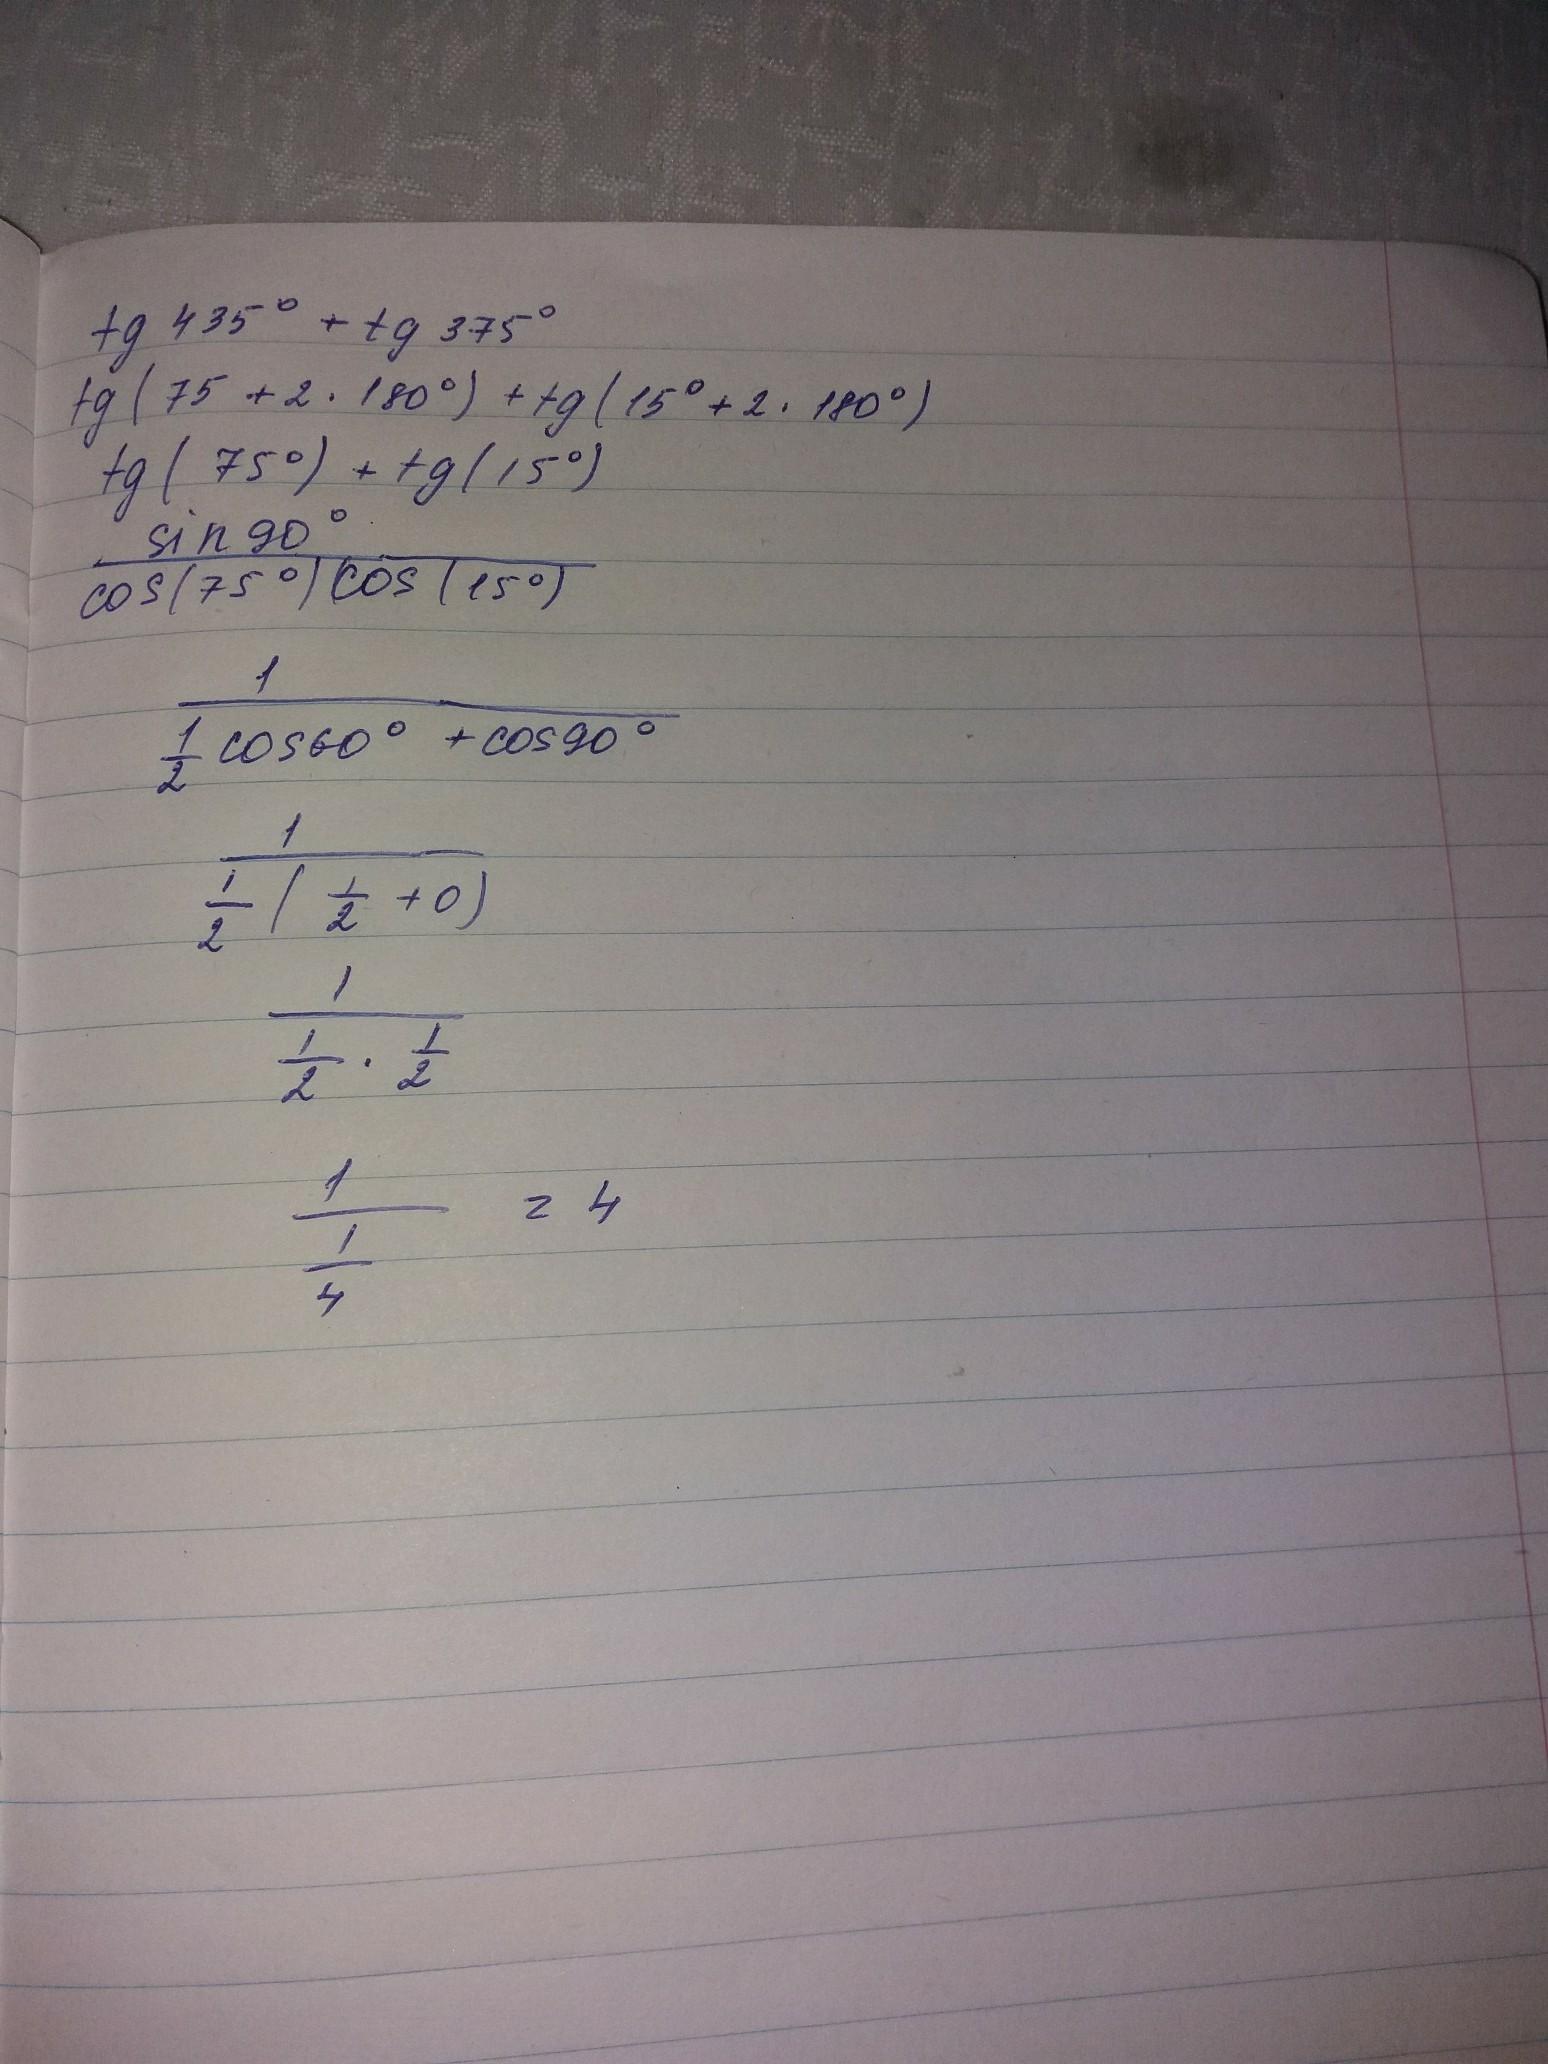 tg 435° + tg 375°
tg(75 + 2 · 180°) + tg(15° + 2 · 180°)
tg(75°) + tg(15°)
sin 90°
cos(75°) cos(15°)
1
1/2 cos60° + cos90°
1
1/2 (1/2 + 0)
1
1/2 · 1/2
1
1/4 = 4